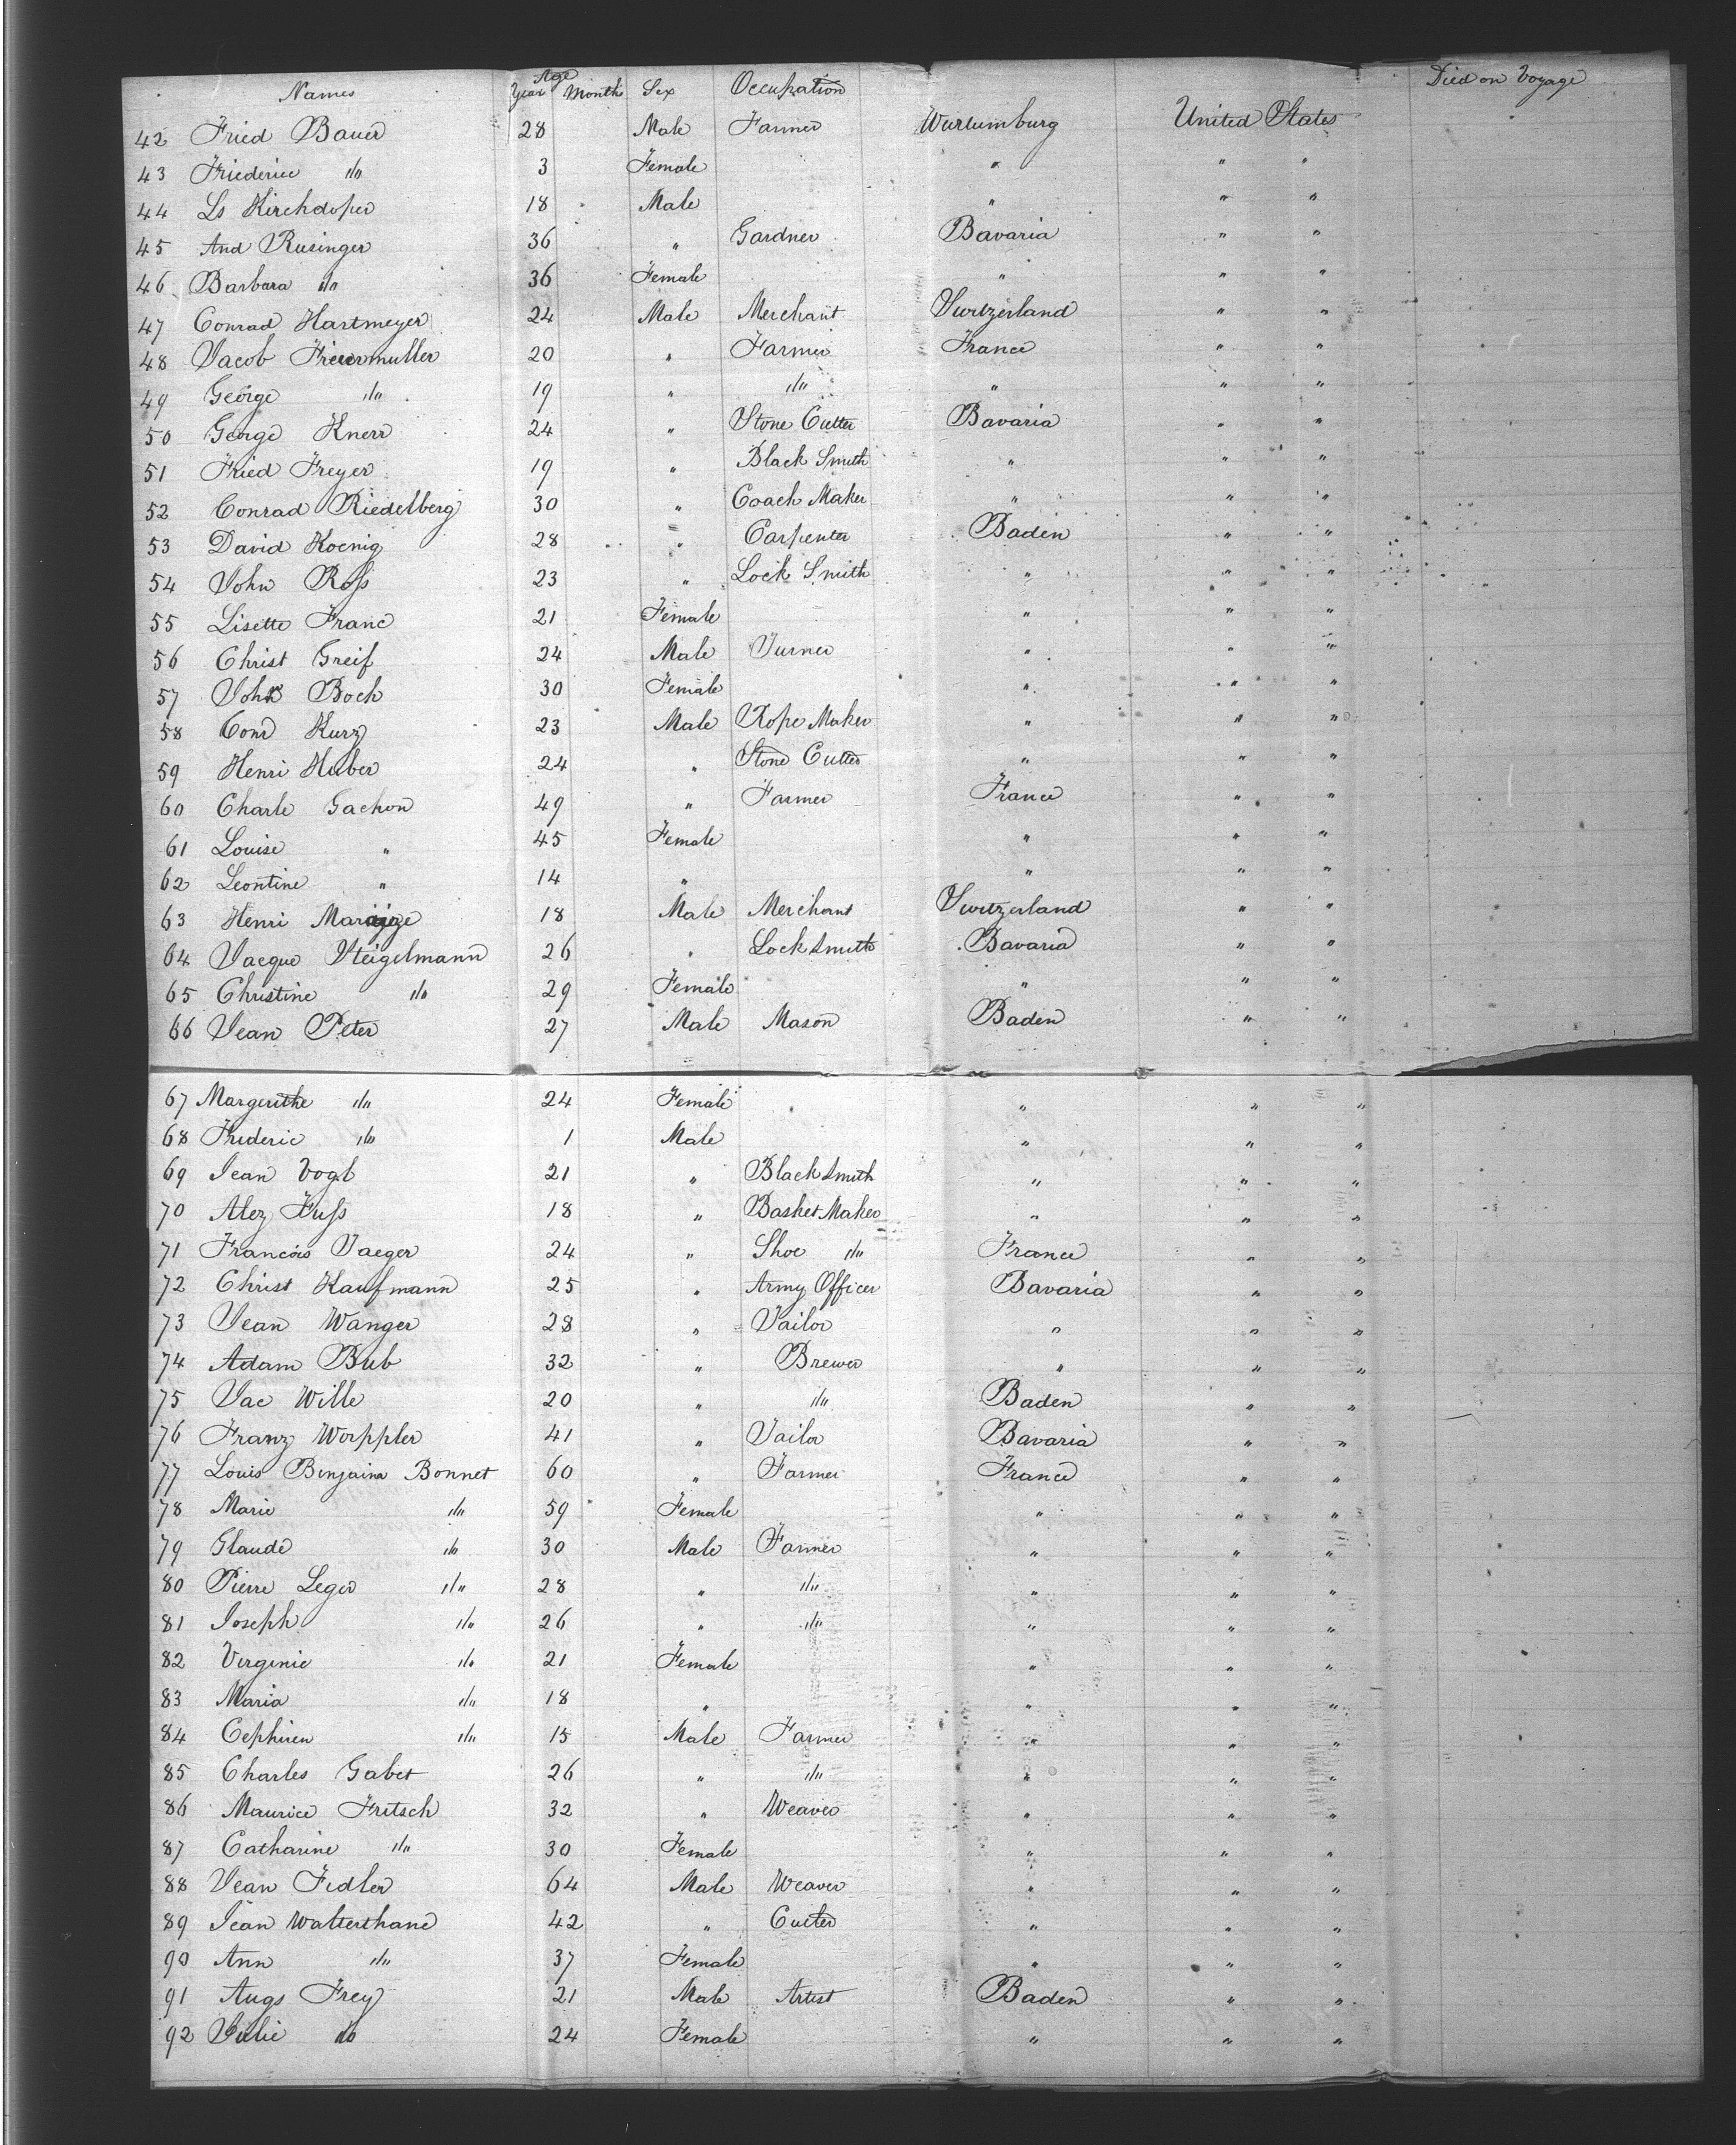 Names Age Year Month Sex Occupation Died on Voyage
42 Fried Bauer 28 Male Farmer Wurtumburg United States
43 Friederice do 3 Female " " "
44 Ls Kirchdofer 18 Male " " "
45 And Rusinger 36 " Gardner Bavaria " "
46 Barbara do 36 Female " " "
47 Conrad Hartmeyer 24 Male Merchant Switzerland " "
48 Jacob Freiermuller 20 " Farmer France " "
49 George do 19 " do " " "
50 George Knerr 24 " Stone Cutter Bavaria " "
51 Fried Freyer 19 " Black Smith " " "
52 Conrad Riedelberg 30 " Coach Maker " " "
53 David Koenig 28 " Carpenter Baden " "
54 John Ross 23 " Lock Smith " " "
55 Lisette Franc 21 Female " " "
56 Christ Greif 24 Male Turner " " "
57 Boch 30 Female " " "
58 Conr Kurz 23 Male Rope Maker " " "
59 Henri Huber 24 " Stone Cutter " " "
60 Charle Gachon 49 " Farmer France " "
61 Louise " 45 Female " " "
62 Leontine " 14 " " " "
63 Henri 18 Male Merchant Switzerland " "
64 Jacque Steigelmann 26 " Locksmith Bavaria " "
65 Christine do 29 Female " " "
66 Jean Peter 27 Male Mason Baden " "
67 Margerithe do 24 Female " " "
68 Frederic do 1 Male " " "
69 Jean Vogt 21 " Blacksmith " " "
70 Alez Fuss 18 " Basket Maker " " "
71 Francois Jaeger 24 " Shoe do France " "
72 Christ Kaufmann 25 " Army Officer Bavaria " "
73 Jean Wanger 28 " Tailor " " "
74 Adam Bub 32 " Brewer " " "
75 Jac Wille 20 " do Baden " "
76 Franz Worppler 41 " Tailor Bavaria " "
77 Louis Benjaim Bonnet 60 " Farmer France " "
78 Marie do 59 Female " " "
79 Glaude do 30 Male Farmer " " "
80 Pierre Leger do 28 " do " " "
81 Joseph do 26 " do " " "
82 Virginie do 21 Female " " "
83 Maria do 18 " " " "
84 Cephiren do 15 Male Farmer " " "
85 Charles Gabet 26 " do " " "
86 Maurice Fritsch 32 " Weaver " " "
87 Catharine do 30 Female " " "
88 Jean Fidler 64 Male Weaver " " "
89 Jean Walterthane 42 " Cutter " " "
90 Ann do 37 Female " " "
91 Augs Frey 21 Male Artist Baden " "
92 Julie do 24 Female " " "